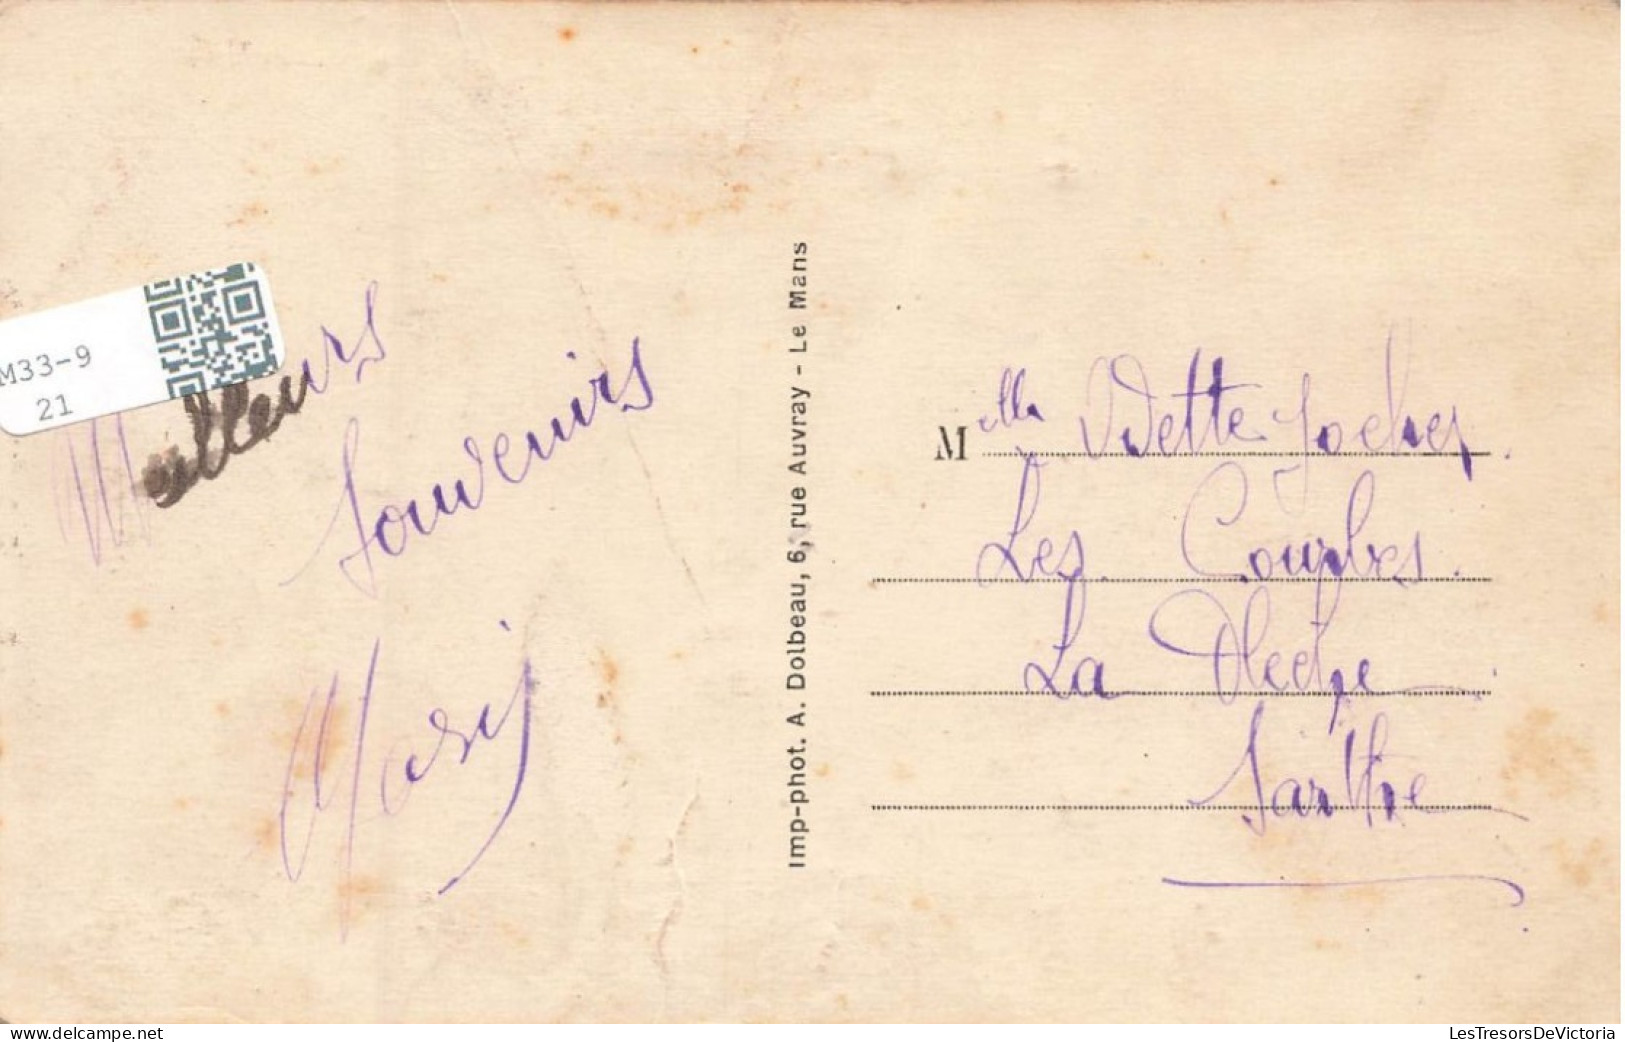 M33-9
21
Meilleurs
Souvenirs
Imp-phot. A. Dolbeau, 6, rue Auvray - Le Mans
Melle Odette
Les Courbes.
La Flèche
Sarthe
www.delcampe.net
LesTresorsDeVictoria